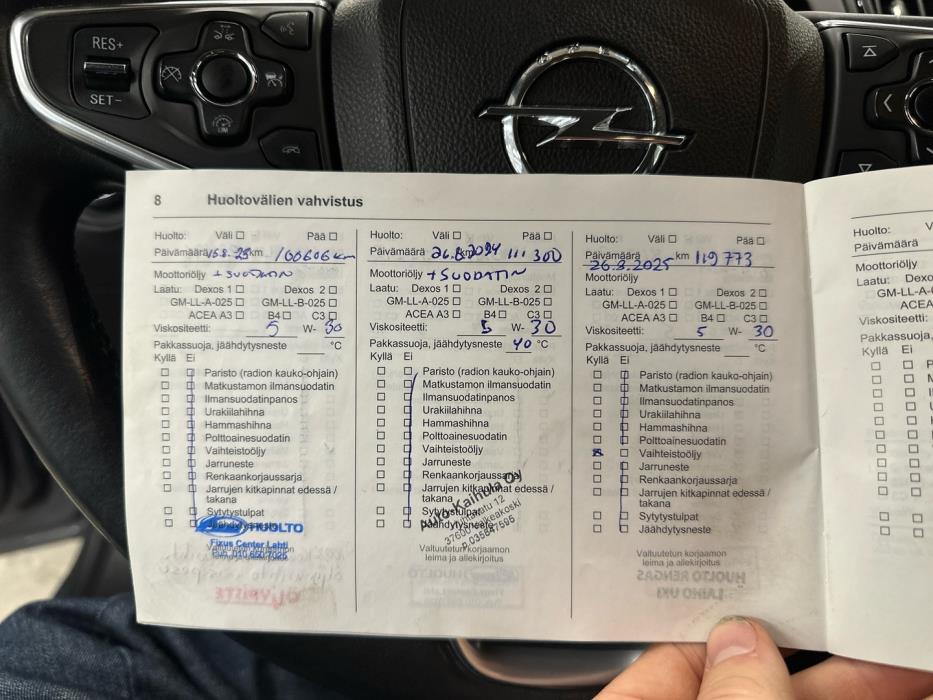 RES+
SET-
LIM
OPEL
8 Huoltovälien vahvistus
Huolto: Väli ☐ Pää ☐
Päivämäärä km 106606 km
Moottoriöljy + SUODATIN
Laatu: Dexos 1 ☐ Dexos 2 ☐
GM-LL-A-025 ☐ GM-LL-B-025 ☐
ACEA A3 ☐ B4 ☐ C3 ☐
Viskositeetti: 5 W- 30
Pakkassuoja, jäähdytysneste °C
Kyllä Ei
☐ ☐ Paristo (radion kauko-ohjain)
☐ ☐ Matkustamon ilmansuodatin
☐ ☐ Ilmansuodatinpanos
☐ ☐ Urakiilahihna
☐ ☐ Hammashihna
☐ ☐ Polttoainesuodatin
☐ ☐ Vaihteistoöljy
☐ ☐ Jarruneste
☐ ☐ Renkaankorjaussarja
☐ ☐ Jarrujen kitkapinnat edessä /
takana
☐ ☐ Sytytystulpat
☐ ☐ Jäähdytysneste
HUOLTO
Fixus Center Lahti
Huolto: Väli ☐ Pää ☐
Päivämäärä 26.8.2024 km 111 300
Moottoriöljy + SUODATIN
Laatu: Dexos 1 ☐ Dexos 2 ☐
GM-LL-A-025 ☐ GM-LL-B-025 ☐
ACEA A3 ☐ B4 ☐ C3 ☐
Viskositeetti: 5 W- 30
Pakkassuoja, jäähdytysneste 40 °C
Kyllä Ei
☐ ☐ Paristo (radion kauko-ohjain)
☐ ☐ Matkustamon ilmansuodatin
☐ ☐ Ilmansuodatinpanos
☐ ☐ Urakiilahihna
☐ ☐ Hammashihna
☐ ☐ Polttoainesuodatin
☐ ☐ Vaihteistoöljy
☐ ☐ Jarruneste
☐ ☐ Renkaankorjaussarja
☐ ☐ Jarrujen kitkapinnat edessä /
takana
☐ ☐ Sytytystulpat
☐ ☐ Jäähdytysneste
Auto-Kaihola Oy
Valtuutetun korjaamon
leima ja allekirjoitus
Huolto: Väli ☐ Pää ☐
Päivämäärä 26.8.2025 km 119 773
Moottoriöljy
Laatu: Dexos 1 ☐ Dexos 2 ☐
GM-LL-A-025 ☐ GM-LL-B-025 ☐
ACEA A3 ☐ B4 ☐ C3 ☐
Viskositeetti: 5 W- 30
Pakkassuoja, jäähdytysneste °C
Kyllä Ei
☐ ☐ Paristo (radion kauko-ohjain)
☐ ☐ Matkustamon ilmansuodatin
☐ ☐ Ilmansuodatinpanos
☐ ☐ Urakiilahihna
☐ ☐ Hammashihna
☐ ☐ Polttoainesuodatin
☒ ☐ Vaihteistoöljy
☐ ☐ Jarruneste
☐ ☐ Renkaankorjaussarja
☐ ☐ Jarrujen kitkapinnat edessä /
takana
☐ ☐ Sytytystulpat
☐ ☐ Jäähdytysneste
Valtuutetun korjaamon
leima ja allekirjoitus
Huolto:
Päivämäärä
Moottoriöljy
Laatu: Dexos
GM-LL-A
ACEA
Viskositeetti:
Pakkassuoja,
Kyllä Ei